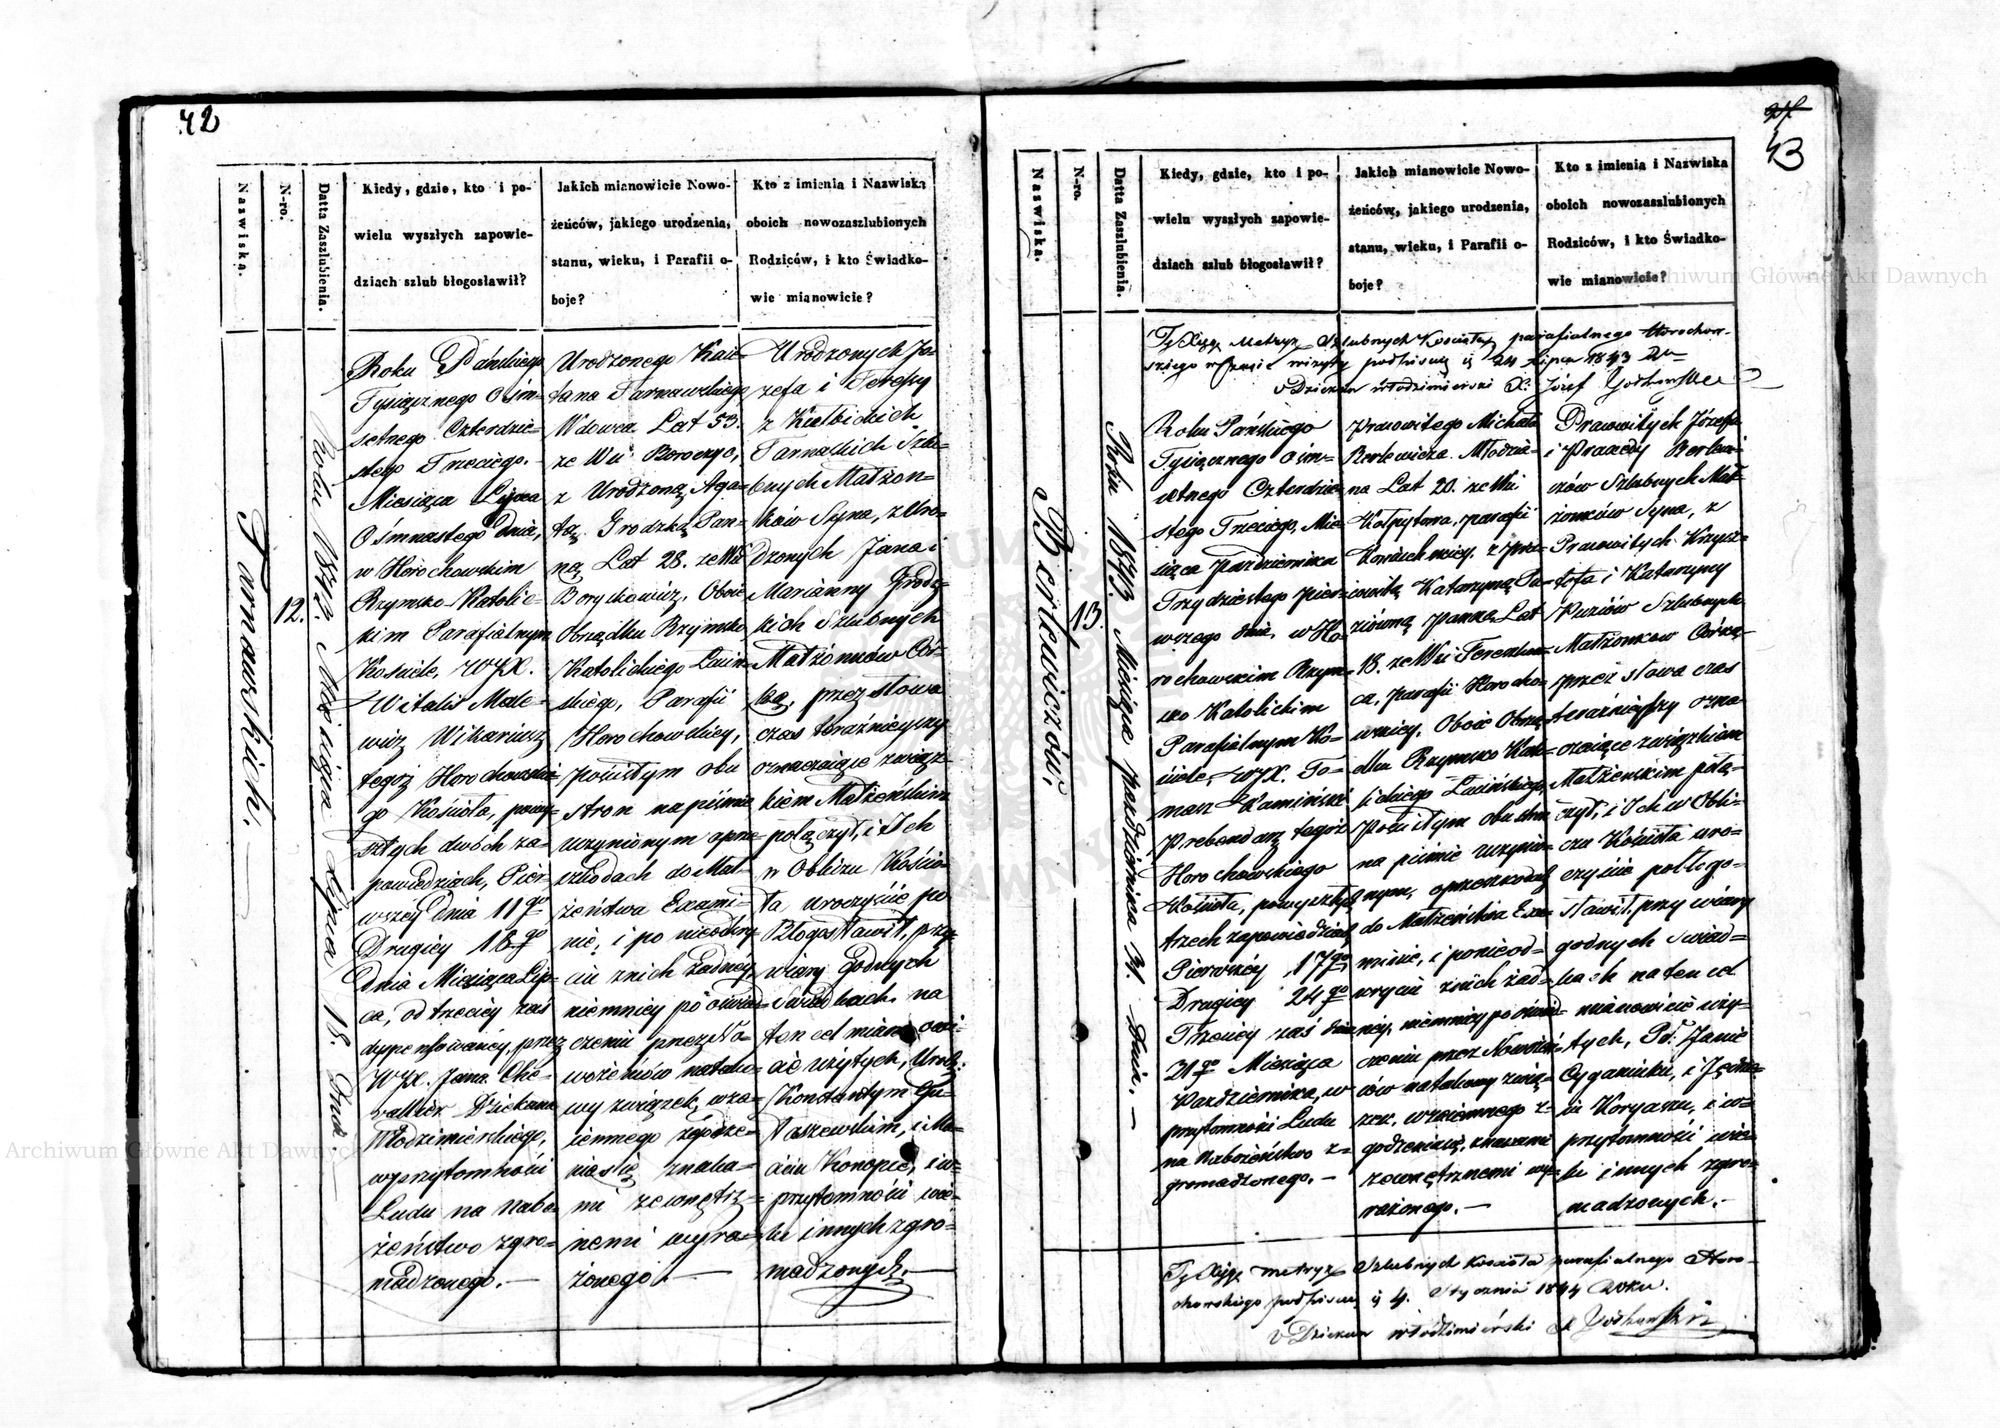 42
Nazwiska.
N-ro.
Datta Zaszlubienia.
Kiedy, gdzie, kto i po-
wielu wyszłych zapowie-
dziach szlub błogosławił?
Jakich mianowicie Nowo-
żeńców, jakiego urodzenia,
stanu, wieku, i Parafii o-
boje?
Kto z imienia i Nazwiska
oboich nowozaszlubionych
Rodziców, i kto Świadko-
wie mianowicie?
Tarnawskich.
12.
Roku 1843. Miesiąca Lipca 18. Dnia.
Roku Pańskiego
Tysiącznego Ośm-
setnego Czterdzie-
stego Trzeciego.
Miesiąca Lipca
Ośmnastego dnia,
w Horochowskim
Rzymsko Katolic-
kim Parafialnym
Kościele, WJX.
Witalis Male-
wicz Wikariusz
tegoż Horochowskie-
go Kościoła, powy-
szłych dwóch za-
powiedziach, Pier-
wszéy dnia 11go
Drugiéy 16go
dnia Miesiąca Lip-
ca, od trzeciéy zaś
dyspensowanéy, przez
WJX. Jana
Dziekana
Włodzimierskiego,
w przytomności
Ludu na Nabo-
żeństwo zgro-
madzonego.
Urodzonego Kaie-
tana Tarnawskiego
Wdowca Lat 53.
ze Wsi
z Urodzoną Aga-
tą Grodzką Pan-
ną Lat 28. ze Wsi
Oboie
Obrządku Rzymsko
Katolickiego Łaciń-
skiego, Parafii
Horochowskiéy,
powstym obu
stron na piśmie
uczynionym oprze-
szkodach do Mał-
żeństwa Exami-
nie, i po nieodkry-
ciu z nich żadnéy,
niemniéy po oświad-
czeniu przez No-
wożeńców natako-
wy związek, wza-
iemnego zgodze-
nia się znaka-
mi zewnętrz-
nemi wyra-
żonego.
Urodzonych Jó-
zefa i Teressy
z Kiełbickich
Tarnawskich Szlu-
bnych Małżon-
ków Syna, z Uro-
dzonych Jana i
Marianny Grodz-
kich Szlubnych
Małżonków Cór-
kę, przez słowa
czas teraźnieyszy
oznaczaiące związ-
kiem Małżeńskim
połączył, i Ich
w Obliczu Kościo-
ła uroczyście po
Błogosławił, przy
wiary Godnych
Świadkach na
ten cel mianowi-
cie użytych, Urodz:
Konstantym Gu-
taszewskim, i Ma-
ciéiu Konopce, i w
przytomności wie-
lu innych zgro-
madzonych.
43
Nazwiska.
N-ro.
Datta Zaszlubienia.
Kiedy, gdzie, kto i po-
wielu wyszłych zapowie-
dziach szlub błogosławił?
Jakich mianowicie Nowo-
żeńców, jakiego urodzenia,
stanu, wieku, i Parafii o-
boje?
Kto z imienia i Nazwiska
oboich nowozaszlubionych
Rodziców, i kto Świadko-
wie mianowicie?
Tę Xięgę Metryk Szlubnych Kościoła parafialnego Horochow-
skiego w czasie wizyty podpisuię 24 Lipca 1843
Dziekan Włodzimierski X. Józef
Berlewiczów.
13.
Roku 1843. Miesiąca Października 31. Dnia.
Roku Pańskiego
Tysiącznego Ośm-
setnego Czterdzie-
stego Trzeciego, Mie-
siąca Października
Trzydziestego pier-
wszego dnia, w Ho-
rochowskim Rzym-
sko Katolickim
Parafialnym Ko-
ściele, WJX. To-
masz Kamiński
Prebendarz tegoż
Horochowskiego
Kościoła, powyszłych
trzech zapowiedziach,
Pierwszéy 17go
Drugiéy 24go
Trzeciéy zaś dnia
31go Miesiąca
Października, w
przytomności Ludu
na Nabożeństwo z-
gromadzonego.
Prawowitego Michała
Berlewicza Młodzia-
na Lat 20. ze Wsi
Kołpytowa, parafii
z pra-
wowitą Katarzyną Pu-
ziówną Panną, Lat
18. ze Wsi
parafii Horocho-
wskiéy, Oboie Obrzą-
dku Rzymsko Kato-
lickiego Łacińskiego,
Powstym obu stron
na piśmie uczynio-
nym, oprzeszkodach
do Małżeństwa Exa-
minie, i ponieod-
kryciu z nich żad-
néy, niemniéy po oświad-
czeniu przez Nowożeń-
ców natakowy zwią-
zek, wzaiemnego z-
godzenia się, znakami
zewnętrznemi wy-
rażonego.
Prawowitych Józefa
i Praxedy Berlewi-
czów Szlubnych Mał-
żonków Syna, z
Prawowitych Krzysz-
tofa i Katarzyny
Puziów Szlubnych
Małżonków Córkę
przez słowa czas
teraźnieyszy ozna-
czaiące związkiem
Małżeńskim połą-
czył, i Ich w Obli-
czu Kościoła uro-
czyście pobłogo-
sławił, przy wiary
godnych Świad-
kach na ten cel
mianowicie uży-
tych, Janie
Cyganiuku, i Jędrze-
iu Koryaszu, i w
przytomności wie-
lu innych zgro-
madzonych.
Tę Xięgę metryk Szlubnych Kościoła parafialnego Horo-
chowskiego podpisuię 4. Stycznia 1844 Roku.
Dziekan Włodzimierski X
Archiwum Główne Akt Dawnych
Archiwum Główne Akt Dawnych